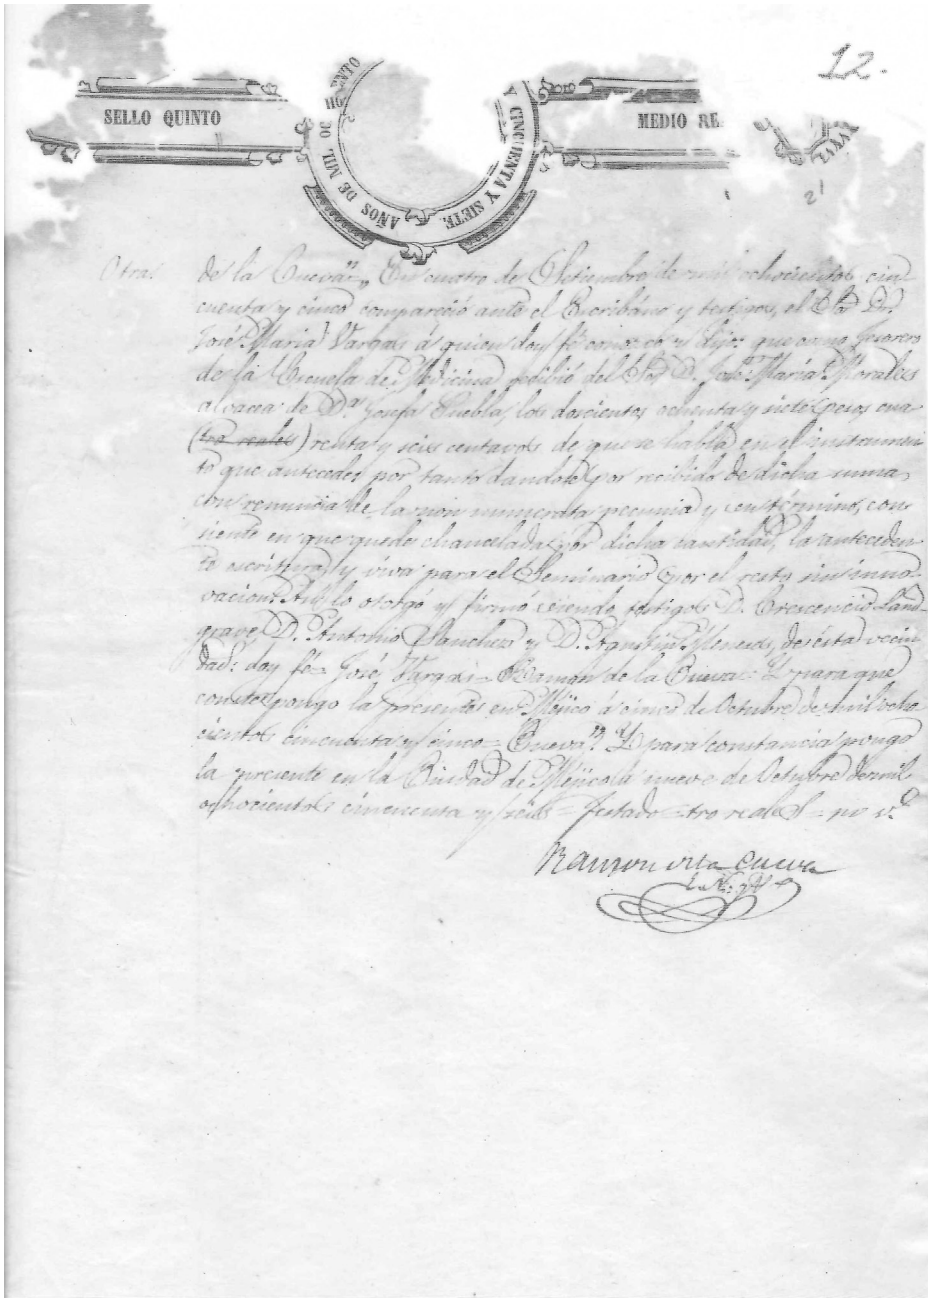 12.
SELLO QUINTO
AÑOS DE MIL OCHO
CINCUENTA Y SIETE
MEDIO RE
21
Otra
de la Cueva. En cuatro de Setiembre de mil ochocientos cin
cuenta y cinco compareció ante el Escribano y testigos, el Sor. Dr.
José María Vargas á quien doy fé conosco y dijo: que como Tesorero
de la Escuela de Medicina recibió del Sor. D. José María Morales
alvacea de Da. Josefa Puebla, los doscientos ochenta y siete pesos cua
(tro reales) renta y seis centavos de que se habla en el instrumen
to que antecede: por tanto dandose por recibido de dicha suma
con renuncia de la non numerata pecunia y su término, con
siente en que quede chancelada por dicha cantidad, la anteceden
te escritura, y viva para el Seminario por el resto sin innu
vacion. Así lo otorgó y firmó siendo testigos D. Crescencio Land
grave, D. Antonio Sanchez y D. Franklin Meneses, de ésta vecin
dad: doy fé = José Vargas = Ramon de la Cueva = Y para que
conste pongo la presente en Méjico á cinco de Octubre de mil ocho
cientos cincuenta y cinco = Cueva. Y para constancia pongo
la presente en la Ciudad de Méjico á nueve de Octubre de mil
ochocientos cincuenta y seis = testado = tro reales = no v.e
Ramon de la Cueva